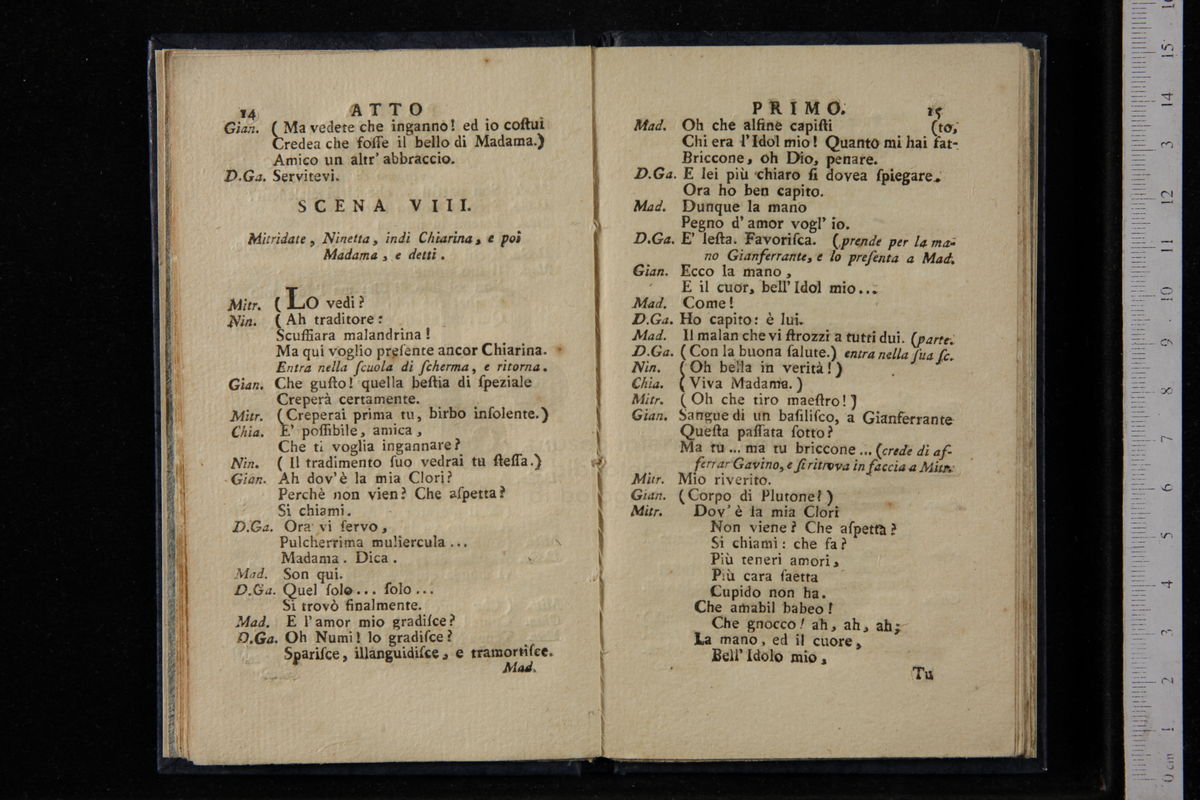 14 ATTO
Gian. ( Ma vedete che inganno! ed io coſtui
Credea che foſſe il bello di Madama.)
Amico un altr' abbraccio.
D.Ga. Servitevi.
SCENA VIII.
Mitridate, Ninetta, indi Chiarina, e poi
Madama, e detti.
Mitr. ( LO vedi?
Nin. ( Ah traditore:
Scuffiara malandrina!
Ma qui voglio preſente ancor Chiarina.
Entra nella ſcuola di ſcherma, e ritorna.
Gian. Che guſto! quella beſtia di ſpeziale
Creperà certamente.
Mitr. (Creperai prima tu, birbo inſolente.)
Chia. E' poſſibile, amica,
Che ti voglia ingannare?
Nin. ( Il tradimento ſuo vedrai tu ſteſſa.)
Gian. Ah dov'è la mia Clori?
Perchè non vien? Che aſpetta?
Si chiami.
D.Ga. Ora vi ſervo,
Pulcherrima muliercula...
Madama. Dica.
Mad. Son qui.
D.Ga. Quel ſolo... ſolo...
Si trovò finalmente.
Mad. E l'amor mio gradiſce?
D.Ga. Oh Numi! lo gradiſce?
Spariſce, illanguidiſce, e tramortiſce.
Mad.
PRIMO. 15
Mad. Oh che alfine capiſti (to,
Chi era l'Idol mio! Quanto mi hai fat-
Briccone, oh Dio, penare.
D.Ga. E lei più chiaro ſi dovea ſpiegare.
Ora ho ben capito.
Mad. Dunque la mano
Pegno d'amor vogl' io.
D.Ga. E' leſta. Favoriſca. (prende per la ma-
no Gianferrante, e lo preſenta a Mad.
Gian. Ecco la mano,
E il cuor, bell' Idol mio...
Mad. Come!
D.Ga. Ho capito: è lui.
Mad. Il malan che vi ſtrozzi a tutri dui. (parte.
D.Ga. ( Con la buona ſalute.) entra nella ſua ſc.
Nin. ( Oh bella in verità!)
Chia. ( Viva Madama.)
Mitr. ( Oh che tiro maeſtro!)
Gian. Sangue di un baſiliſco, a Gianferrante
Queſta paſſata ſotto?
Ma tu... ma tu briccone... (crede di af-
ferrar Gavino, e ſi ritrova in faccia a Mitr.
Mitr. Mio riverito.
Gian. ( Corpo di Plutone!)
Mitr. Dov' è la mia Clori
Non viene? Che aſpetta?
Si chiami: che fa?
Più teneri amori,
Più cara ſaetta
Cupido non ha.
Che amabil babeo!
Che gnocco! ah, ah, ah;
La mano, ed il cuore,
Bell' Idolo mio,
Tu
0 cm 1 2 3 4 5 6 7 8 9 10 11 12 13 14 15 16